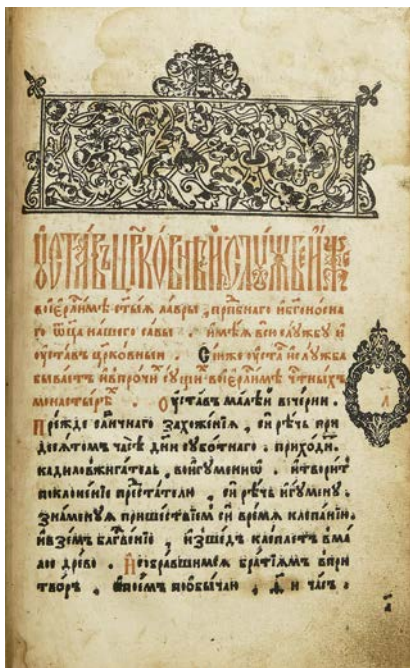 ОУСТАВЪ ЦРКОВНЫЙ СЛУЖБЕ
воіерⷭ҇лимѣ ст҃ыѧ лавры, прпⷣбнаго ибгоносна
го ѿц҃а нашего савы. имѣѧ всю службу и
оуставъ црковныи. Сииже оуставъ ислужба
бываетъ ивпрочи сущи воіерⷭ҇лимѣ чтⷭныхъ
монастырѣ. Оуставъ малѣй вечерни.
Прежде слн҃чнаго захоженія, си рѣчь при
десѧтомъ часѣ дни суботнаго. приходи
кадиловжигатель, воигуменꙋ. итворит
поклоненіе престателю, си рѣчь игумену.
знаменуѧ пришествіемъ си времѧ клепанію.
ивземъ блгⷭвеніе, изшедъ клеплетъ вма
лое древо. Исобравшимсѧ братіѧмъ впри
творъ, споемъ пообычаю, ѳ҃ и часъ.